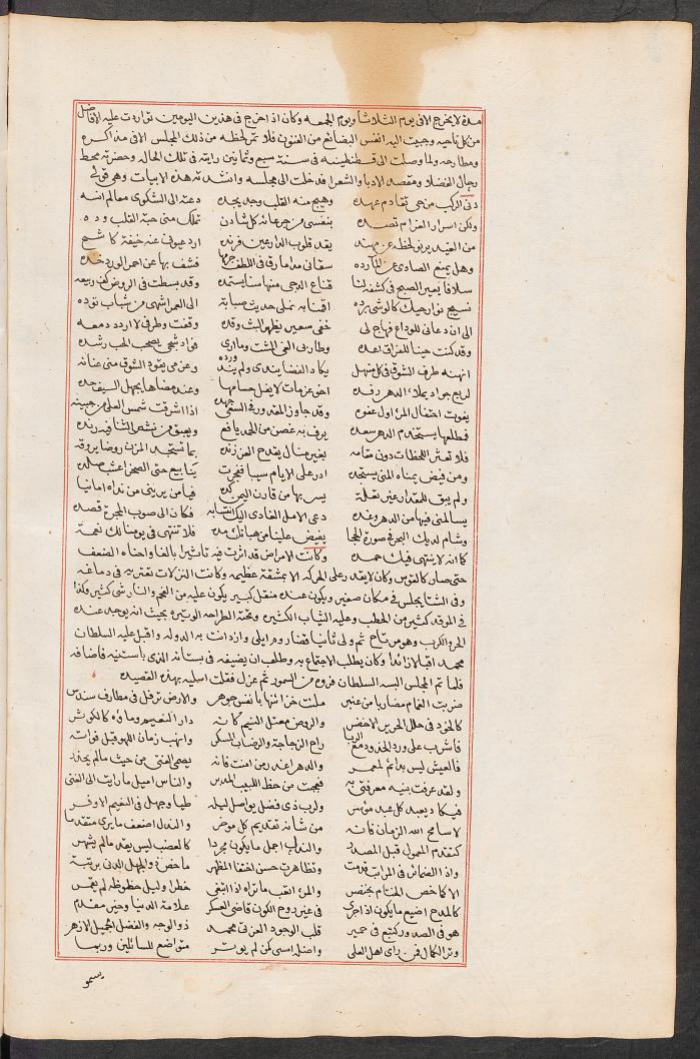 مدة لا يخرج الا في يوم الثلاثا ويوم الجمعه وكان اذا خرج في هذين اليومين تواردت عليه الافاضل
من كل ناحيه وجيبت اليه انفس البضائع من الفنون فلا تمر لحظه من ذلك المجلس الا في مذاكره
ومطارحه ولما وصلت الى قسطنطينيه في سنة سبع وثمانين رايته في تلك الحاله وحضرته محط
رحال الفضلا ومقصد الادبا والشعرا فدخلت الى مجلسه وانشدته هذه الابيات وهي قولي
دنى الركب من حي تقادم عهده وهيج منه القلب وجد يجده دعته الى الشكوى معالم انسه
ولكن اسرار الغرام تصده بنفسي من جرعائه كل شادن تملك مني حبة القلب وده
من الغيد يرنو لحظه عن مهند يقد قلوب الدارعين فرنده اردعوني عنه خيفة كاشح
وهل يمنع الصادي عن الماء رده سقاني مداما رق في اللطف جرمها فشف بها عن احمر الورد خده
سلافا يعير الصبح في كشفه لثا قناع الدجى منها سنا يستمده وقد بسطت في الروض كف ربيعه
نسيج نوار حيك كالوشي برده اقمنا به نملي حديث صبابة الى العمر اشهى من شباب نوده
الى ان دعاني للوداع فهاج لي خفي سعير يظهر البث وقده وقفت وطرفي لا اردد دمعه
وقد كنت حينا للفراق اعده وطاربي العي المشت وما ارى فوادي شجي يصحب الحب رشده
انهنه طرف الشوق في كل منهل يكاد الفضا يندى ولم يند ورده وعزمي يقود الشوق مني عنانه
لرايع جواد يملأ الدهر وفده اخو عزمات لا يفل حسامها وعند مضاها يجهل السيف حده
يفوت احتفال المرء اول عفوه وقد جاوز المقدور في السعي جهده اذا اشرقت شمس العلى من جبينه
فطلعها يستخدم الدهر سعده يرف به غصن من المجد يافع ويعبق من نشر الثنا فيه رنده
فلا تعثر اللحظات دون مقامه بغير منال يقدح العز زنده بما تستجد المزن روضا يروقه
ومن فيض يمناه المنى يستجده ادر على الايام سيبا فجرت ينابيع حتى الصخر اعشب صلده
ولم يبق للمقدار عين تقلة يسر بها من قارن اليمن كده فيا من يريني من نداه امانيا
يسالمني فيها من الدهر وفده دعى الامل الغادي اليك انتسابه فكان الى صوب المجرة قصده
وشام لديك البحر في صورة الحجا يفيض علينا من هباتك مده فلا تنتهي في يومنا لك نعمة
كما انه لا ينتهي فيك حمده وكانت الامراض قد اثرت فيه تاثيرا بالغا واحناه الضعف
حتى صار كالقوس وكان لا يقدر على الحركه الا بمشقة عظيمه وكانت النزلات تعتريه في دماغه
وفي الشتا يجلس في مكان صغير ويكون عنده منقل كبير يكون عليه من الفحم والنار شي كثير وكذا
في الموقد كثير من الحطب وعليه الثياب الكثيره وتحته الطراحه الوثيره بحيث انه يوجد عنده
الحر والكرب وهو مرتاح ثم ولي ثانيا قضا روم ايلي وازدانت به الدوله واقبل عليه السلطان
محمد اقبالا زائدا وكان يطلب الاجتماع به وطلب ان يضيفه في بستانه الذي باستنيه فاضافه
فلما تم المجلس البسه السلطان فروه من السمور ثم عزل فقلت اسليه بهذه القصيده
ضربت الغمام مضاربا من عنبر ملئت خزائنها بانفس جوهر والارض ترفل في مطارف سندس
كالخود في حلل الحرير الاخضر والروض معتل النسيم كانه دار النعيم وماؤه كالكوثر
فاشرب على ورد الخدود مع الربا راح الزجاجة والرضاب المسكر وانهب زمان اللهو قبل فواته
فالعيش ليس بدائم لمعمر والدهر اغدر من امنت فانه يصمي الفتى من حيث ما لم يحذر
ولقد عرفت بنيه معرفتي به فعجبت من حظ اللبيب المدبر والناس اميل ما رايت الى الغنى
فيكاد يعبد كل عبد موسر ولرب ذي فضل يواصل ليله طيا وجهل في النعيم الاوفر
لا سامح الله الزمان فانه من شانه تقديم كل موخر والنذل اضعف ما يرى متقدما
كتقدم المعمول قبل المصدر والندب اجمل ما يكون مجردا كالعضب ليس يقد ما لم يشهر
واذا الضمائر في المراتب قدمت وتظاهرت حسن اختفا المظهر ما خص ذو الجهل الدني برتبة
الا كما خص الختام بخنصر والمرء اتعب ما تراه اذا ابتغى خطرا وليل حظوظه لم يقمر
كالمدح اضيع ما يكون اذا جرى في غير روح الكون قاضي العسكر علامة الدنيا وخير مقدم
هو في الصدور كتبع في حمير قلب الوجود العز في محمد ذو الوجه والفضل الجميل الازهر
وترالكمال فمن راى اهل العلى واصله اسمى كن لم يوتر متواضع للسائلين وربما
يسمو